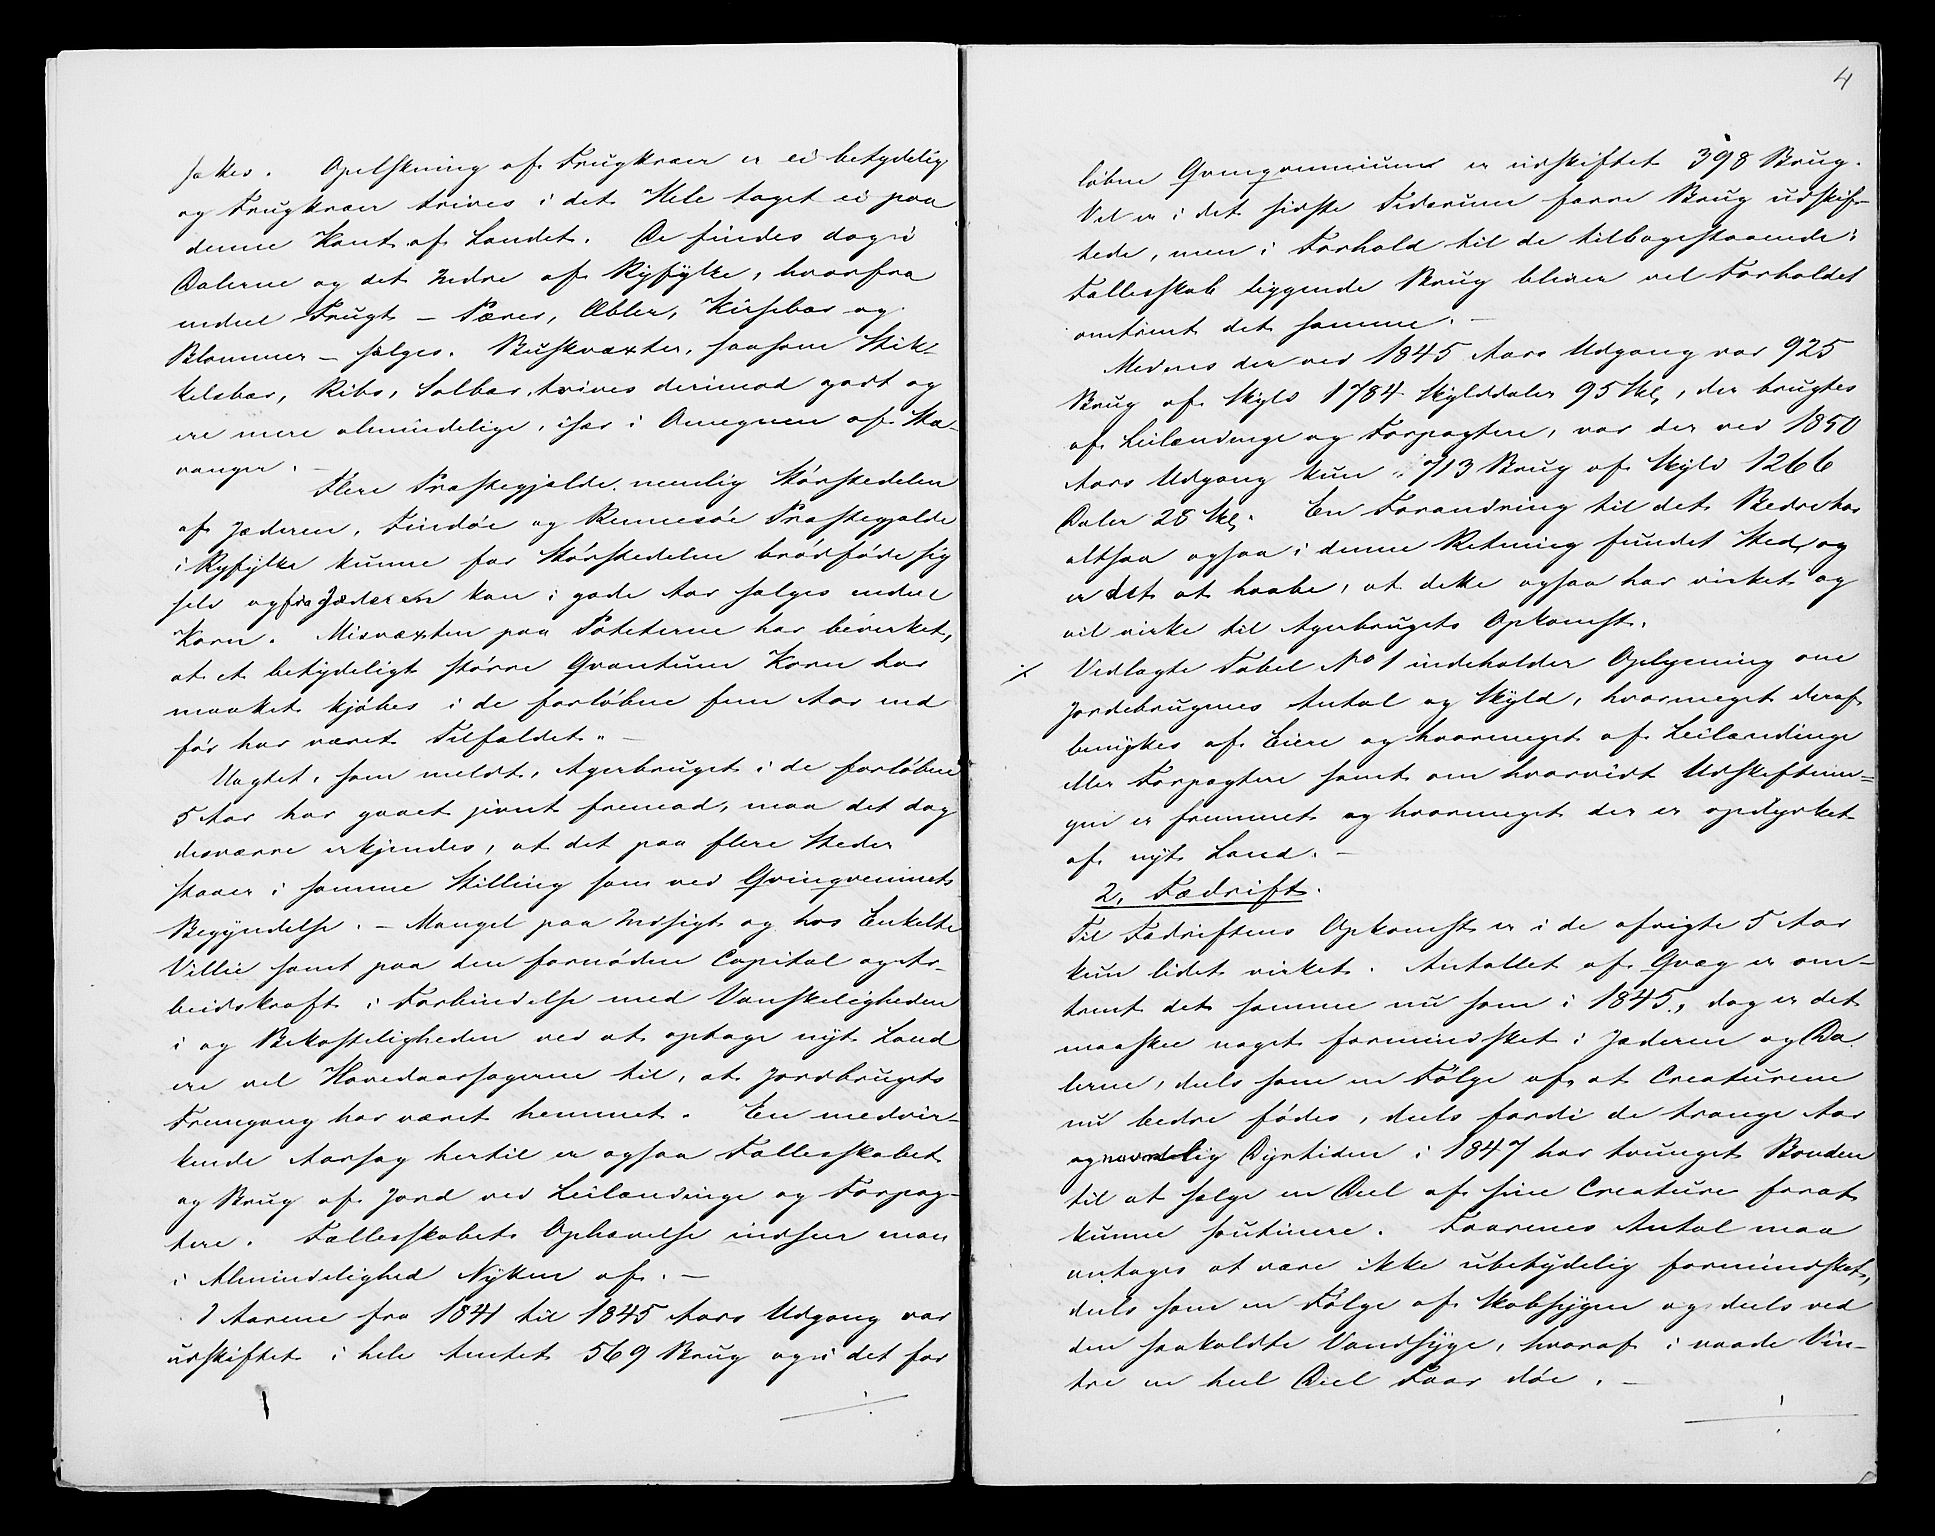 sættes. Opelskning af Frugttræer er ei betydelig
og Frugttræer trives i det Hele taget ei paa
denne Kant af Landet. De findes dog i
Dalerne og det Indre af Ryfylke, hvorfra
endeel Frugt – Pærer, Æbler, Kirsebær og
Blommer – sælges. Buskvæxter, saasom Stik-
kelsbær, Ribs, Solbær, trives derimod godt og
ere mere almindelige, især i Omegnen af Sta-
vanger. –
Flere Præstegjelde, nemlig Størstedelen
af Jæderen, Findøe og Rennesøe Præstegjelde
i Ryfylke kunne for Størstedelen brødføde sig
selv og fra Jæderen kan i gode Aar sælges endeel
Korn. Misvæxten paa Poteterne har bevirket,
at et betydeligt større Qvantum Korn har
maattet kjøbes i de forløbne fem Aar end
før har været Tilfældet. –
Uagtet, som meldt, Agerbruget i de forløbne
5 Aar har gaaet jevnt fremad, maa det dog
desværre erkjendes, at det paa flere Steder
staaer i samme Stilling som ved Qvinqvenniets
Begyndelse. – Mangel paa Indsigt og hos Enkelte
Villie samt paa den fornødne Capital og Ar-
beidskraft i Forbindelse med Vanskeligheden
i og Bekosteligheden ved at optage nyt Land
ere vel Hovedaarsagerne til, at Jordbrugets
Fremgang har været hemmet. En medvir-
kende Aarsag hertil er ogsaa Fælleskabet
og Brug af Jord ved Leilændinge og Forpag-
tere. Fælleskabets Ophævelse indseer man
i Almindelighed Nytten af. –
I Aarene fra 1841 til 1845 Aars Udgang var
udskiftet i hele Amtet 569 Brug og i det for
4
løbne Qvinqvennium er udskiftet 398 Brug.
Vel er i det sidste Tidsrum færre Brug udskif-
tede, men i Forhold til de tilbagestaaende i
Fælleskab liggende Brug bliver vel Forholdet
omtrent det samme. –
Medens der ved 1845 Aars Udgang var 925
Brug af Skyld 1784 Skylddaler 95 Skl, der brugtes
af Leilændinge og Forpagtere, var der ved 1850
Aars Udgang kun 713 Brug af Skyld 1266
Daler 28 Skl. En Forandring til det Bedre har
altsaa ogsaa i denne Retning fundet Sted og
er det at haabe, at dette ogsaa har virket og
vil virke til Agerbrugets Opkomst.
⁒ Vedlagte Tabel No 1 indeholder Oplysning om
Jordebrugenes Antal og Skyld, hvormeget deraf
benyttes af Eiere og hvormeget af Leilændinge
eller Forpagtere samt om hvorvidt Udskiftnin-
gen er fremmet og hvormeget der er opdyrket
af nyt Land. –
2. Fædrift.
Til Fædriftens Opkomst er i de afvigte 5 Aar
kun lidet virket. Antallet af Qvæg er om-
trent det samme nu som i 1845, dog er det
maaskee noget formindsket i Jæderen og Da
lerne, deels som en Følge af at Creaturene
nu bedre fødes, deels fordi de trange Aar
og navnlig Dyrtiden i 1847 har tvunget Bonden
til at sælge en Deel af sine Creature forat
kunne soutinere. Faarenes Antal maa
antages at være ikke ubetydelig formindsket,
deels som en Følge af Skabsygen og deels ved
den saakaldte Vandsyge, hvoraf i vaade Vin-
tre en heel Deel Faar døe. –